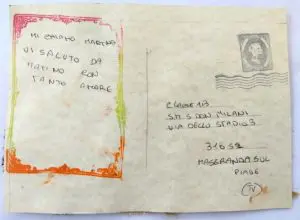 MI CHIAMO MARTINA
VI SALUTO DA
CON
TANTO AMORE
CLASSE 1B
S.M.S DON MILANI
VIA DELLO STADIO 3
31052
MASERADA SUL
PIAVE
TV